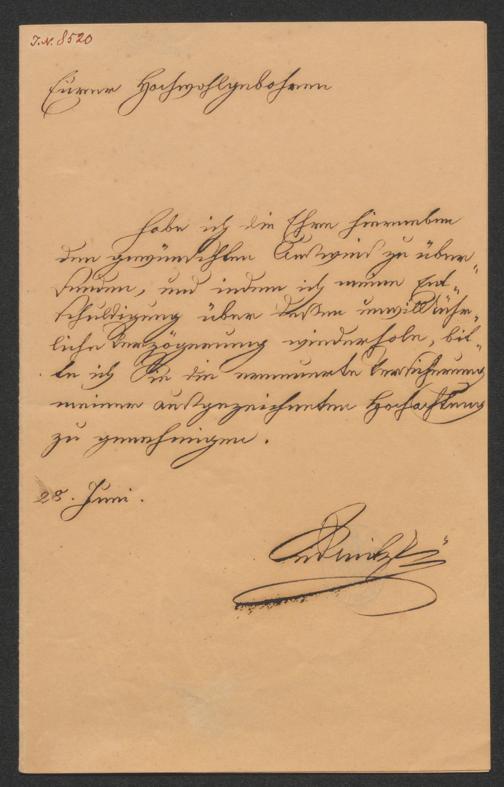 I.N. 8520
Eurer Hochwohlgebohren
habe ich die Ehre hierneben
den gewünschten Ausweis zu über„
senden, und indem ich meine Ent„
schuldigung über dessen unwillkühr„
liche Verzögerung wiederhole, bit„
te ich Sie die erneuerte Versicherung
meiner ausgezeichneten Hochachtung
zu genehmigen.
28. Juni.